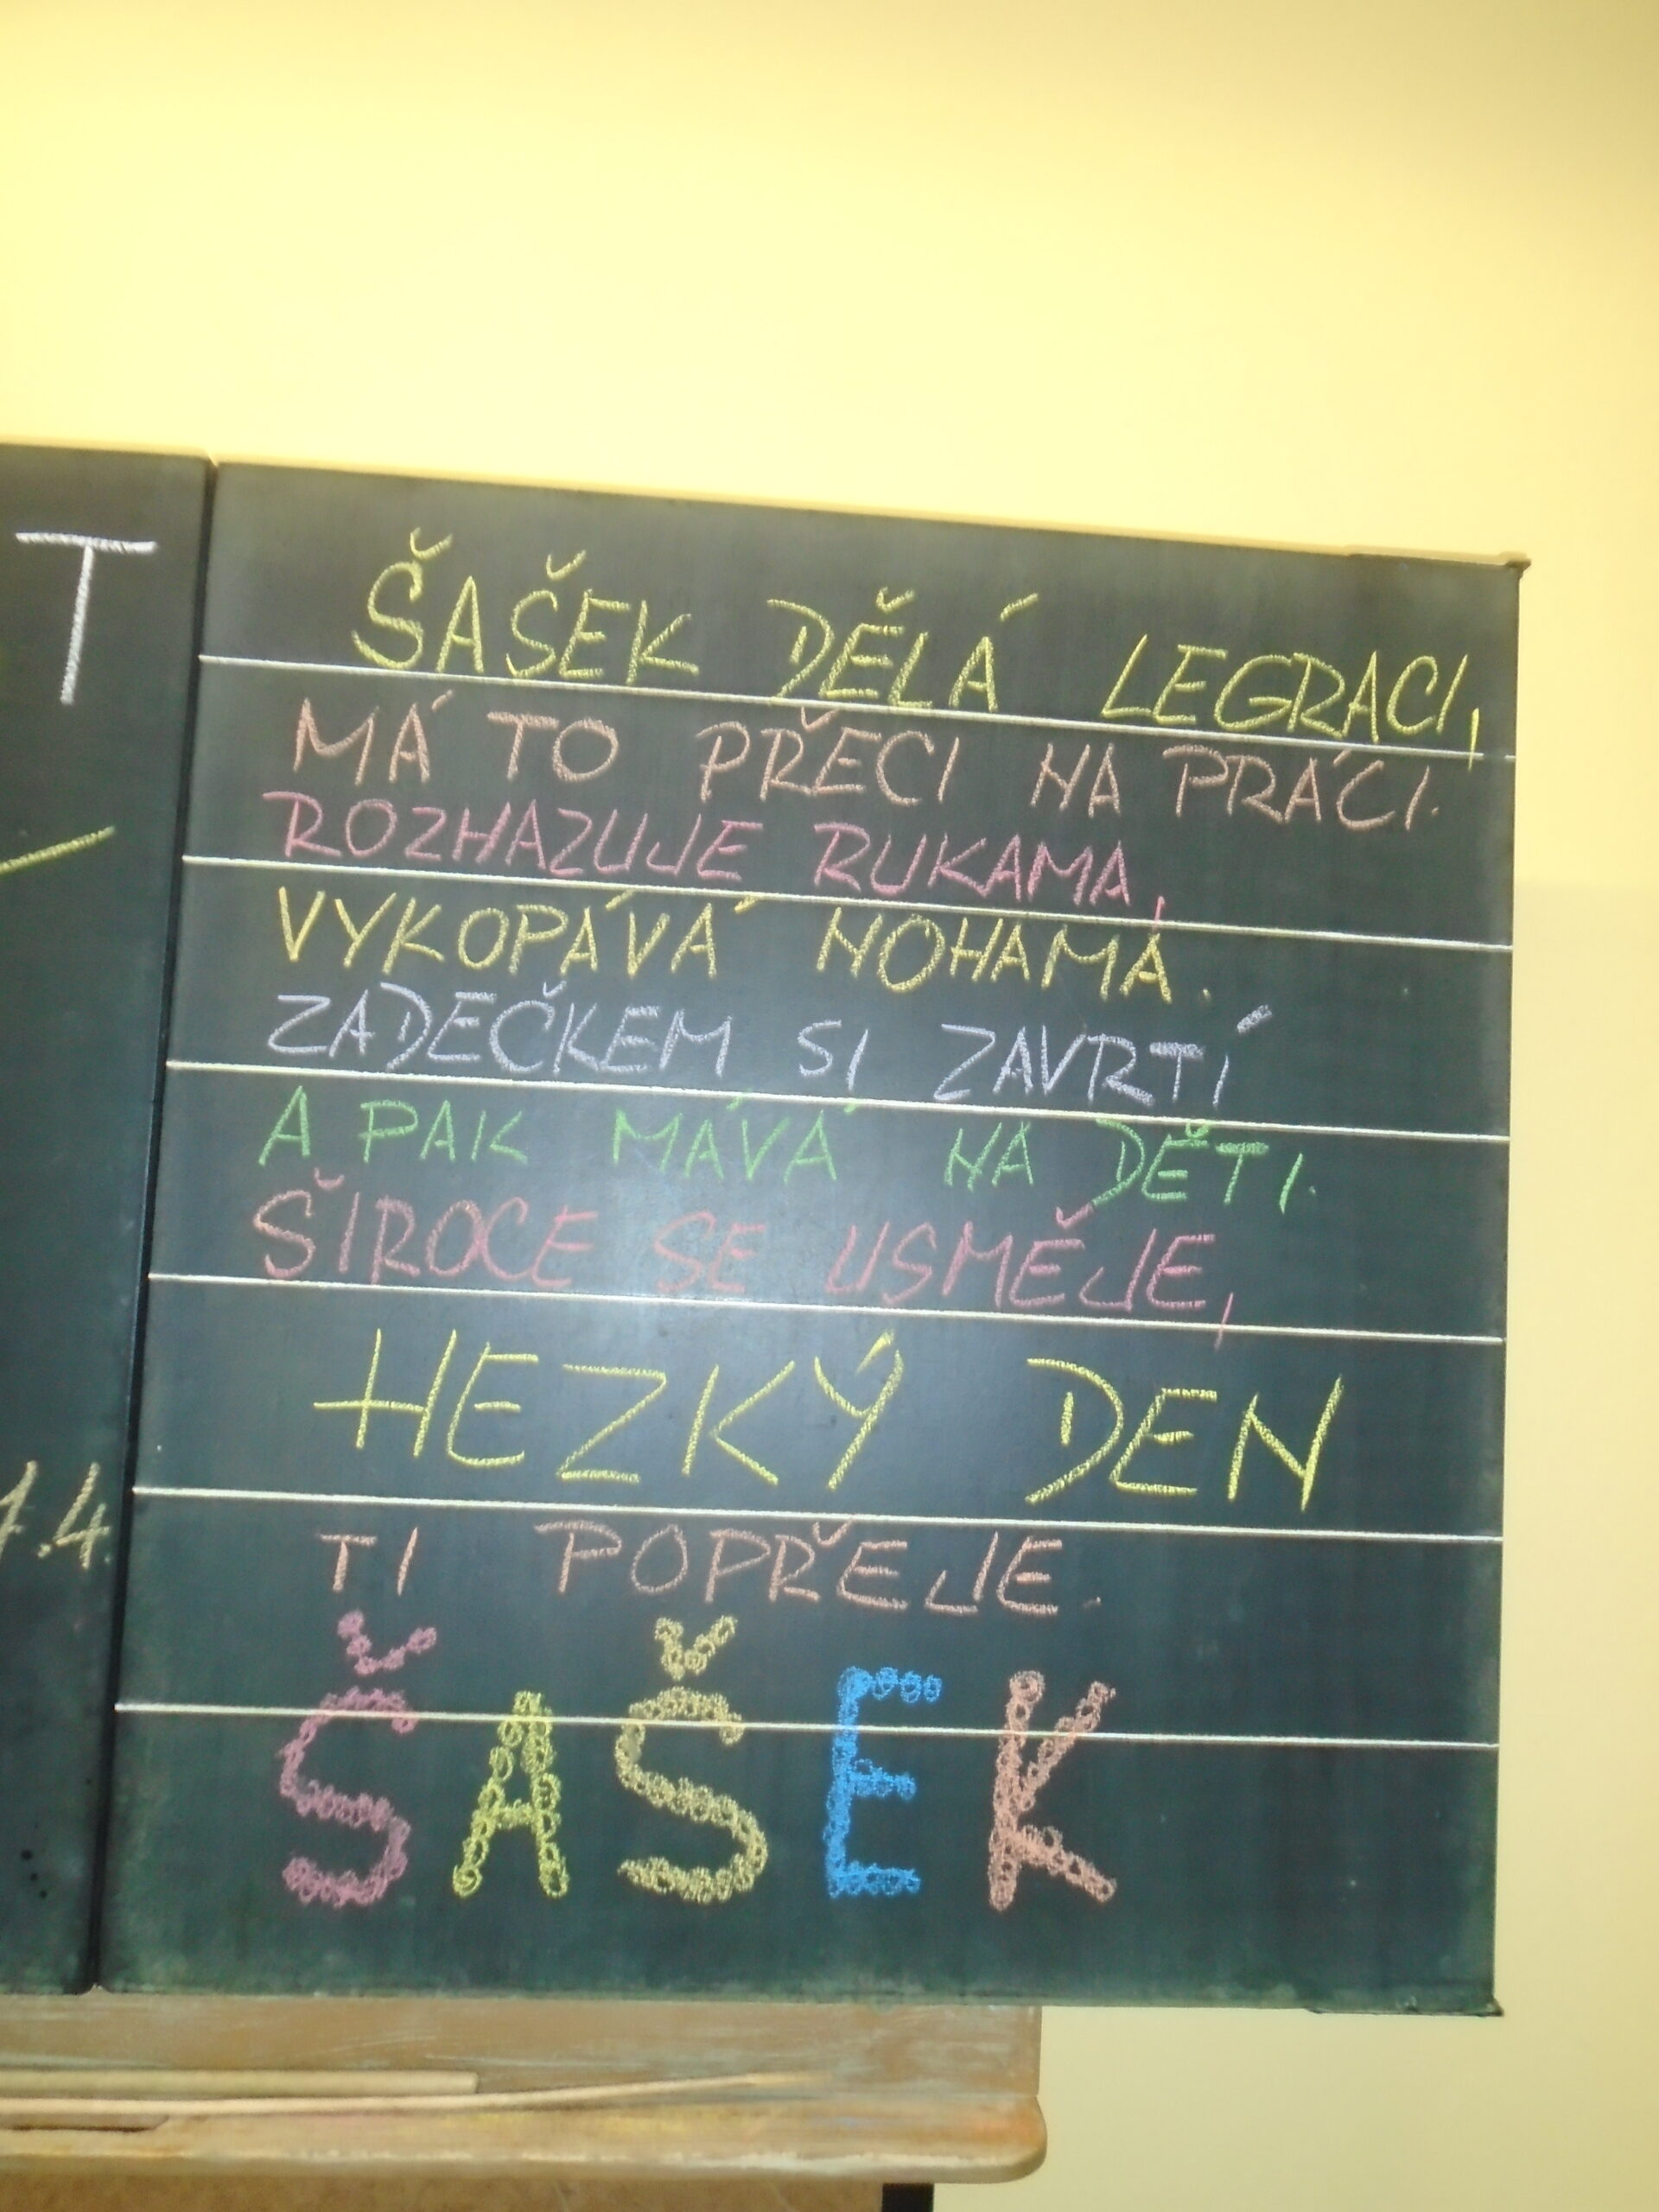 T
ŠAŠEK DĚLÁ LEGRACI,
MÁ TO PŘECI NA PRÁCI.
ROZHAZUJE RUKAMA,
VYKOPÁVÁ NOHAMA.
ZADEČKEM SI ZAVRTÍ
A PAK MÁVÁ NA DĚTI.
ŠIROCE SE USMĚJE,
HEZKÝ DEN
TI POPŘEJE.
ŠAŠEK